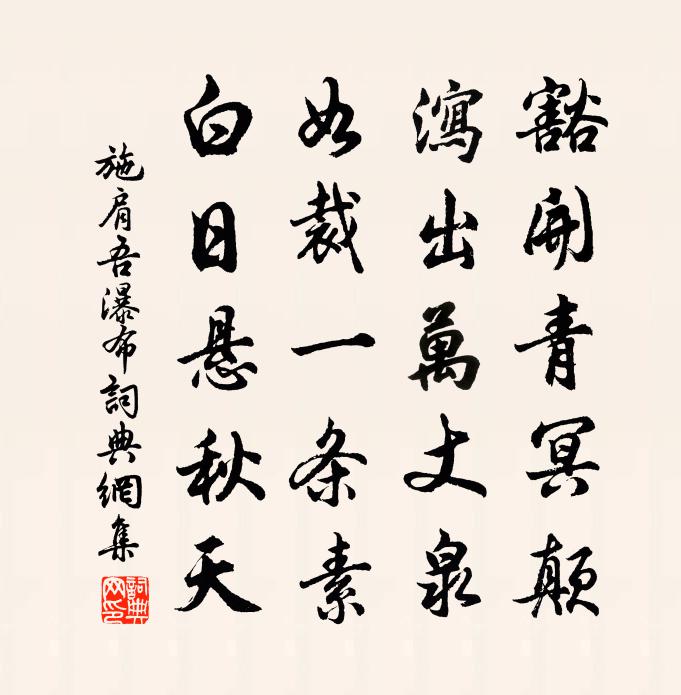 豁開青冥顛
瀉出萬丈泉
如裁一条素
白日悬秋天
施肩吾瀑布詞典網集
詞典网印